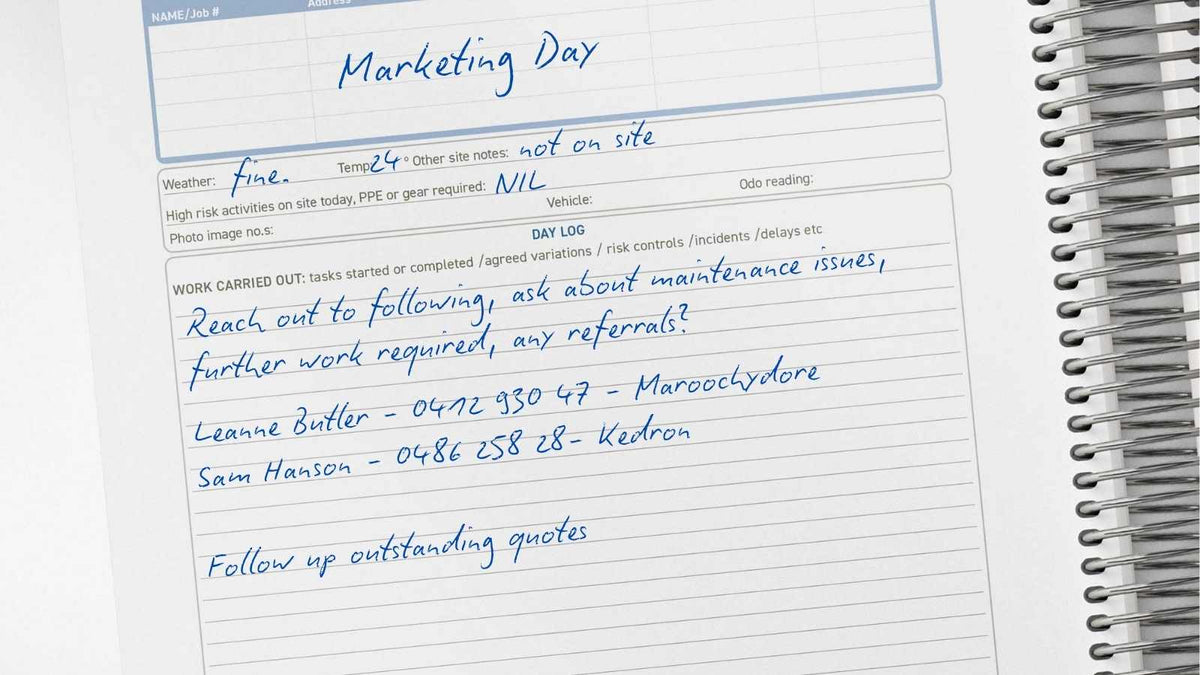 NAME/Job # Address
Marketing Day
Weather: fine. Temp 24° Other site notes: not on site
High risk activities on site today, PPE or gear required: NIL
Photo image no.s: Vehicle: Odo reading:
DAY LOG
WORK CARRIED OUT: tasks started or completed /agreed variations / risk controls /incidents /delays etc
Reach out to following, ask about maintenance issues,
further work required, any referrals?
Leanne Butler - 0412 930 47 - Maroochydore
Sam Hanson - 0486 258 28 - Kedron
Follow up outstanding quotes